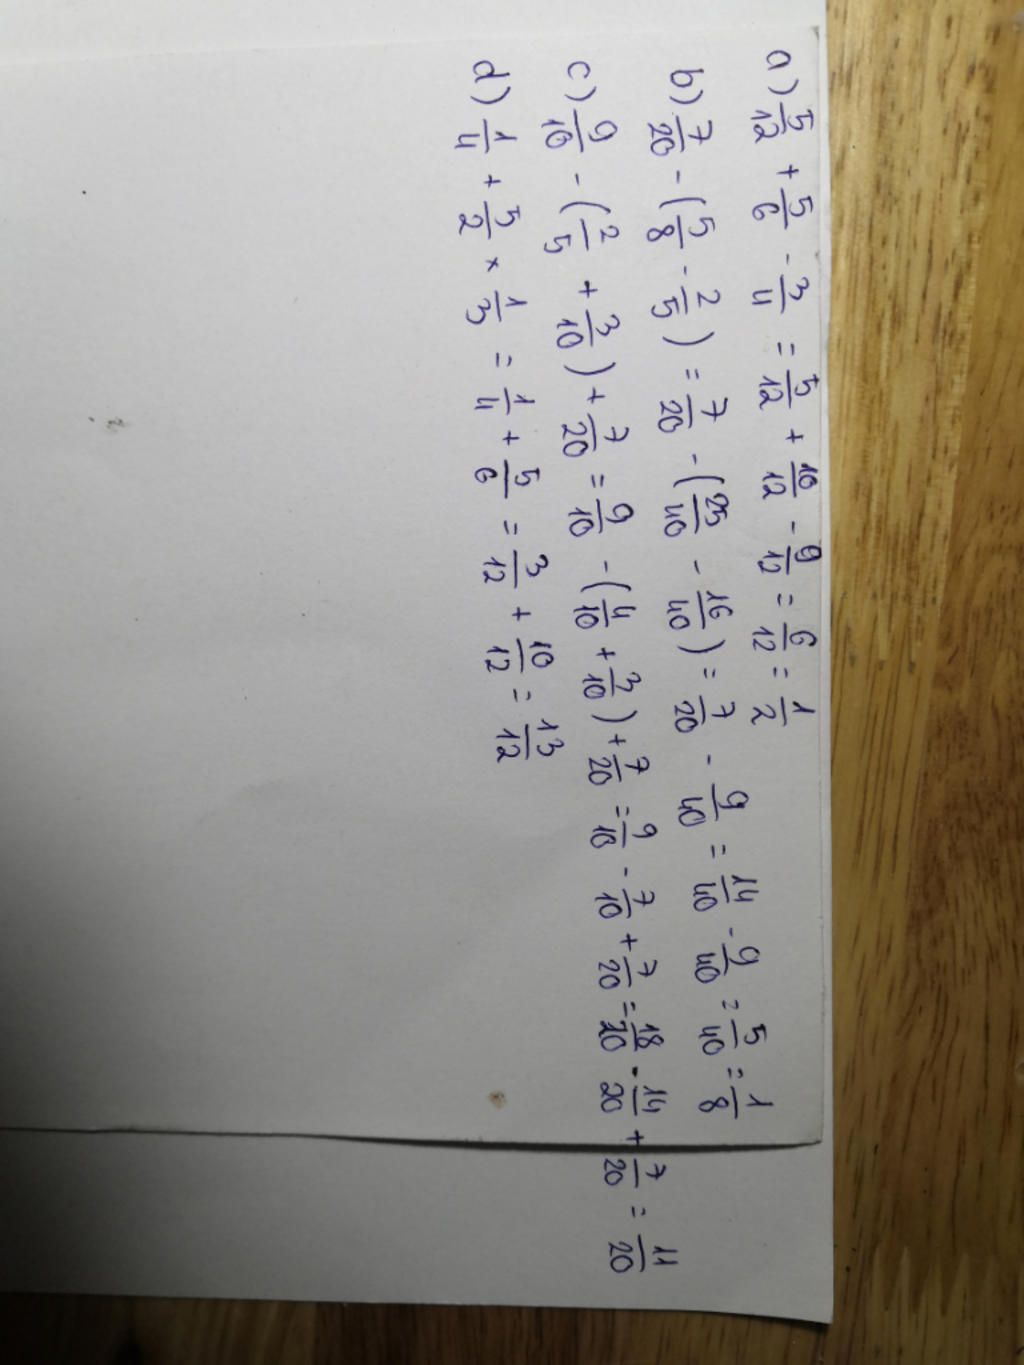 a) 5/12 + 5/6 - 3/4 = 5/12 + 10/12 - 9/12 = 6/12 = 1/2
b) 7/20 - (5/8 - 2/5) = 7/20 - (25/40 - 16/40) = 7/20 - 9/40 = 14/40 - 9/40 = 5/40 = 1/8
c) 9/10 - (2/5 + 3/10) + 7/20 = 9/10 - (4/10 + 3/10) + 7/20 = 9/10 - 7/10 + 7/20 = 18/20 - 14/20 + 7/20 = 11/20
d) 1/4 + 5/2 × 1/3 = 1/4 + 5/6 = 3/12 + 10/12 = 13/12